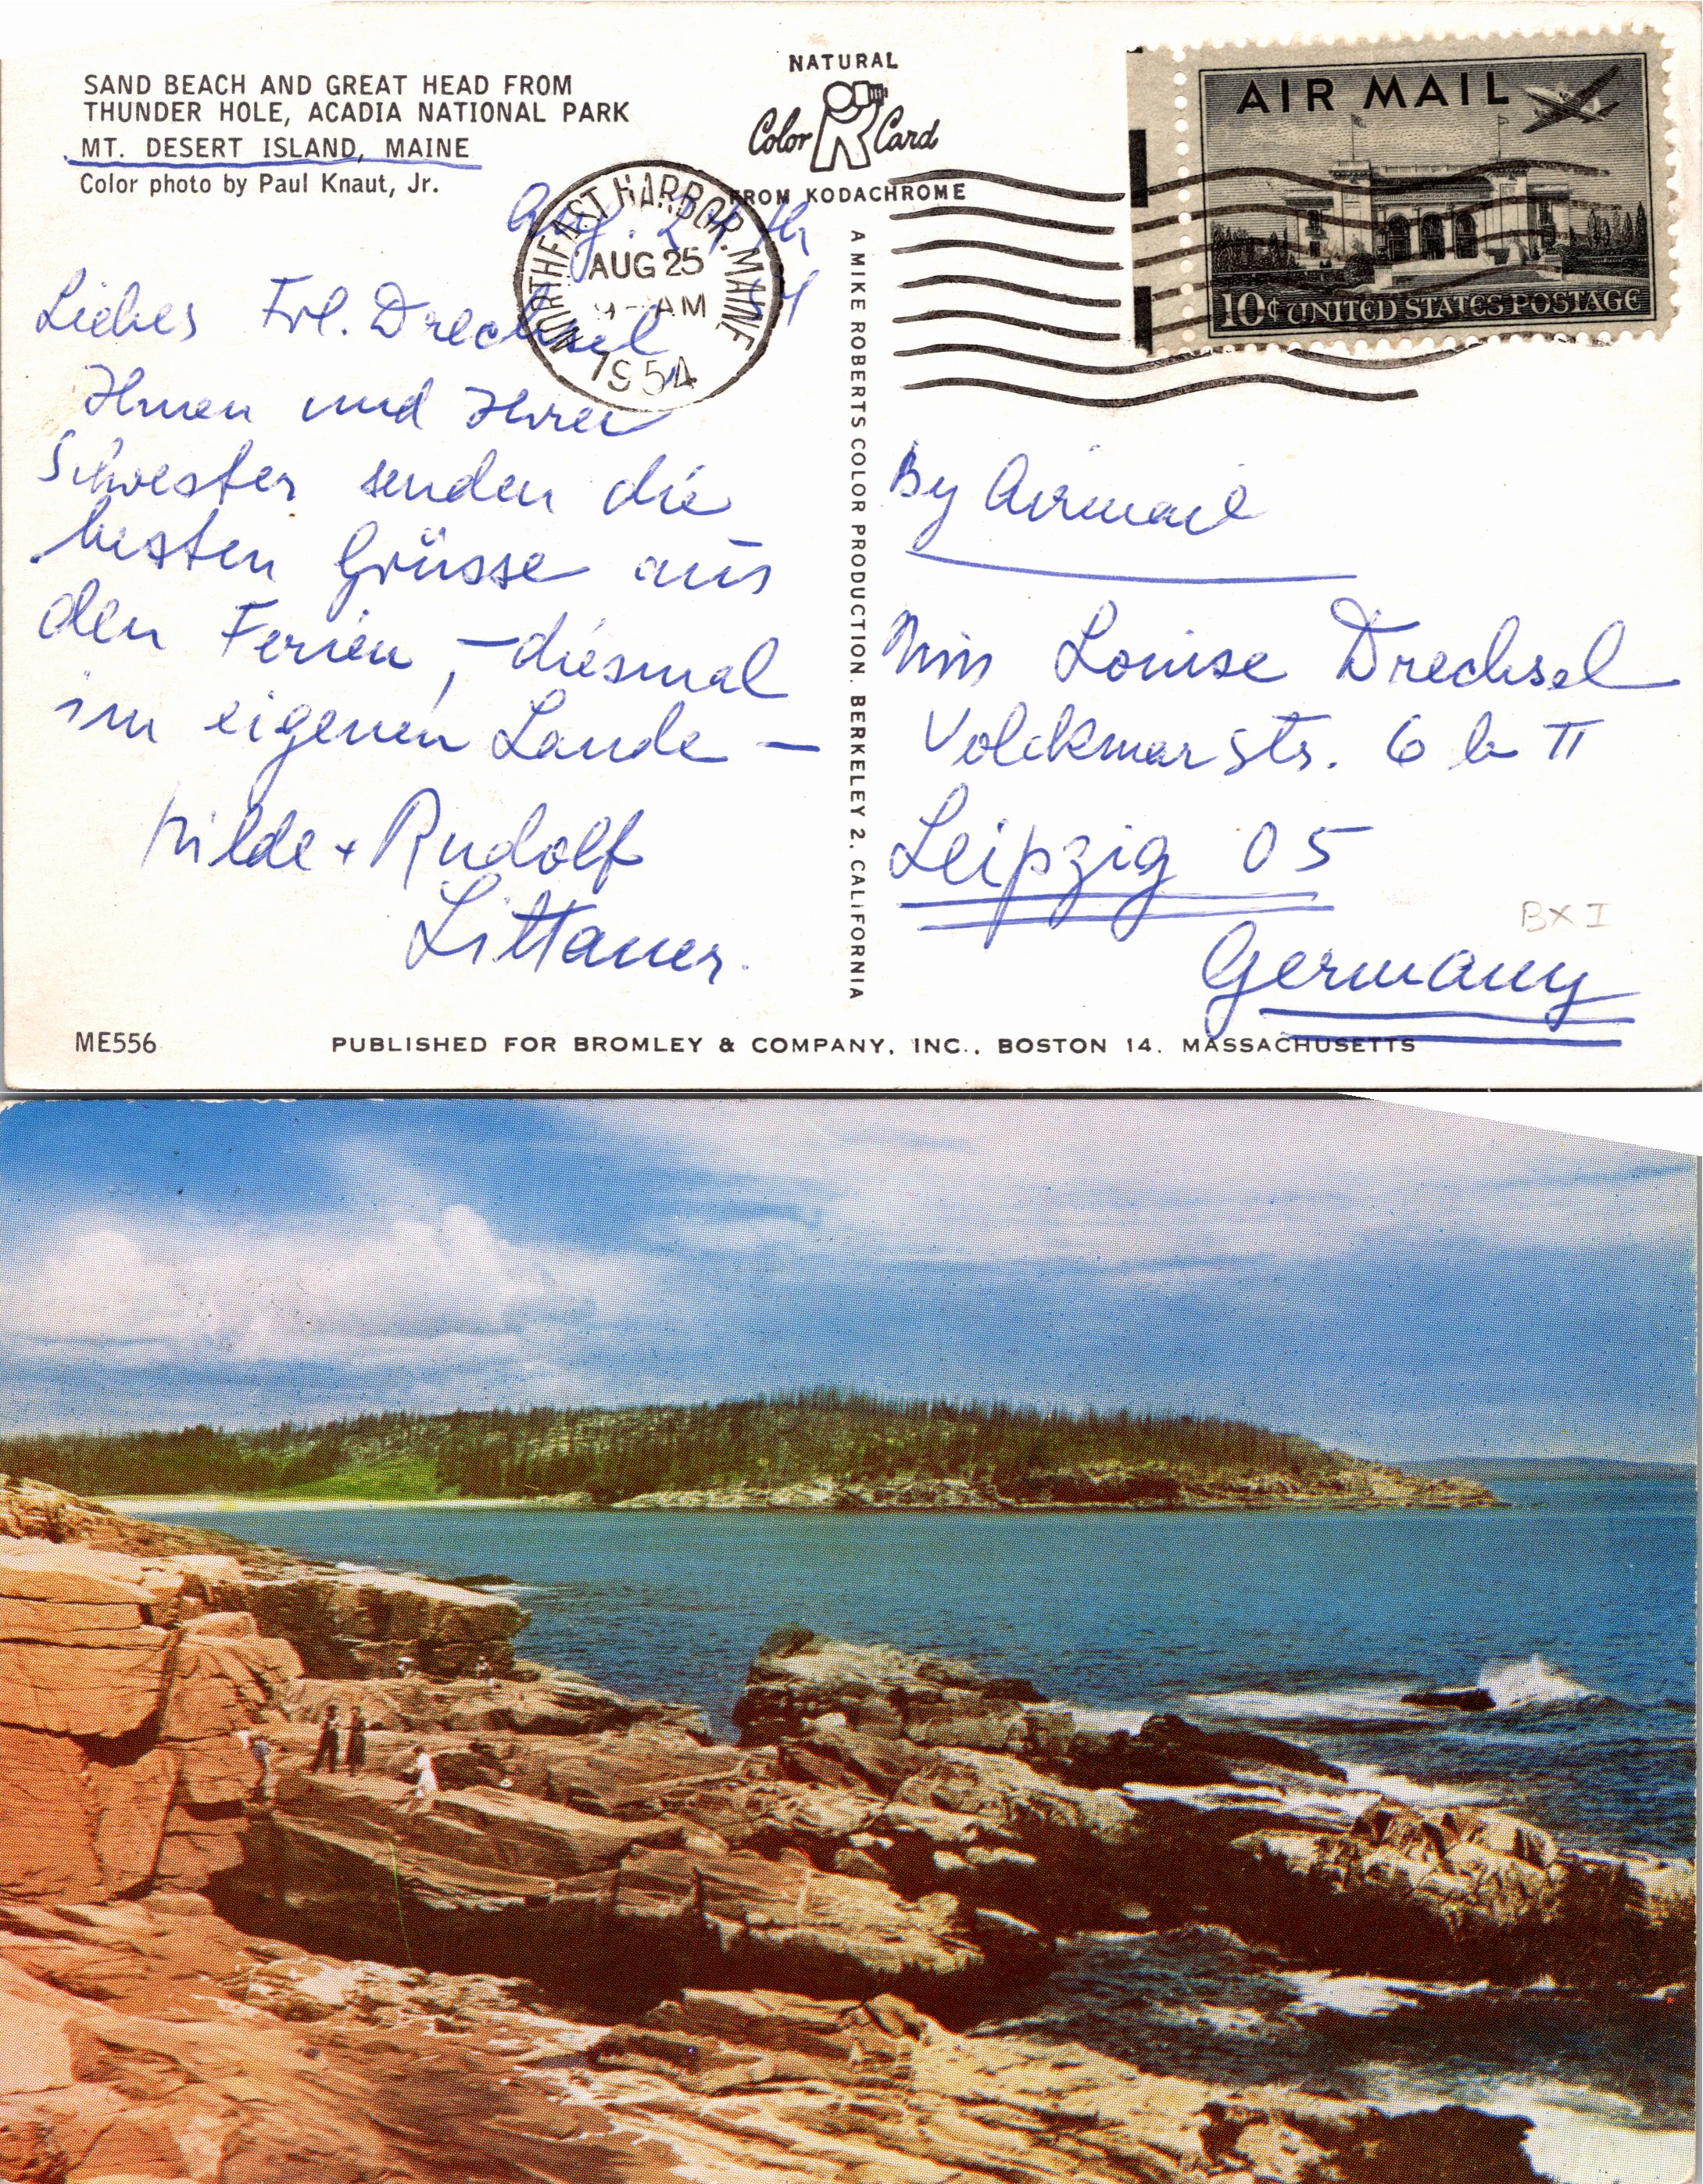 SAND BEACH AND GREAT HEAD FROM
THUNDER HOLE, ACADIA NATIONAL PARK
MT. DESERT ISLAND, MAINE
Color photo by Paul Knaut, Jr.
NATURAL
Color R Card
FROM KODACHROME
AIR MAIL
10¢ UNITED STATES POSTAGE
NORTHEAST HARBOR, MAINE
AUG 25
9 - AM
1954
Aug. 24th
54
Liebes Frl. Drechsel
Ihnen und Ihrer
Schwester senden die
besten Grüsse aus
den Ferien, - diesmal
im eigenen Lande —
Hilde + Rudolf
Littauer.
A MIKE ROBERTS COLOR PRODUCTION. BERKELEY 2, CALIFORNIA
By Airmail
Miss Louise Drechsel
Volckmarstr. 6 b II
Leipzig O 5
BX I
Germany
ME556
PUBLISHED FOR BROMLEY & COMPANY, INC., BOSTON 14. MASSACHUSETTS